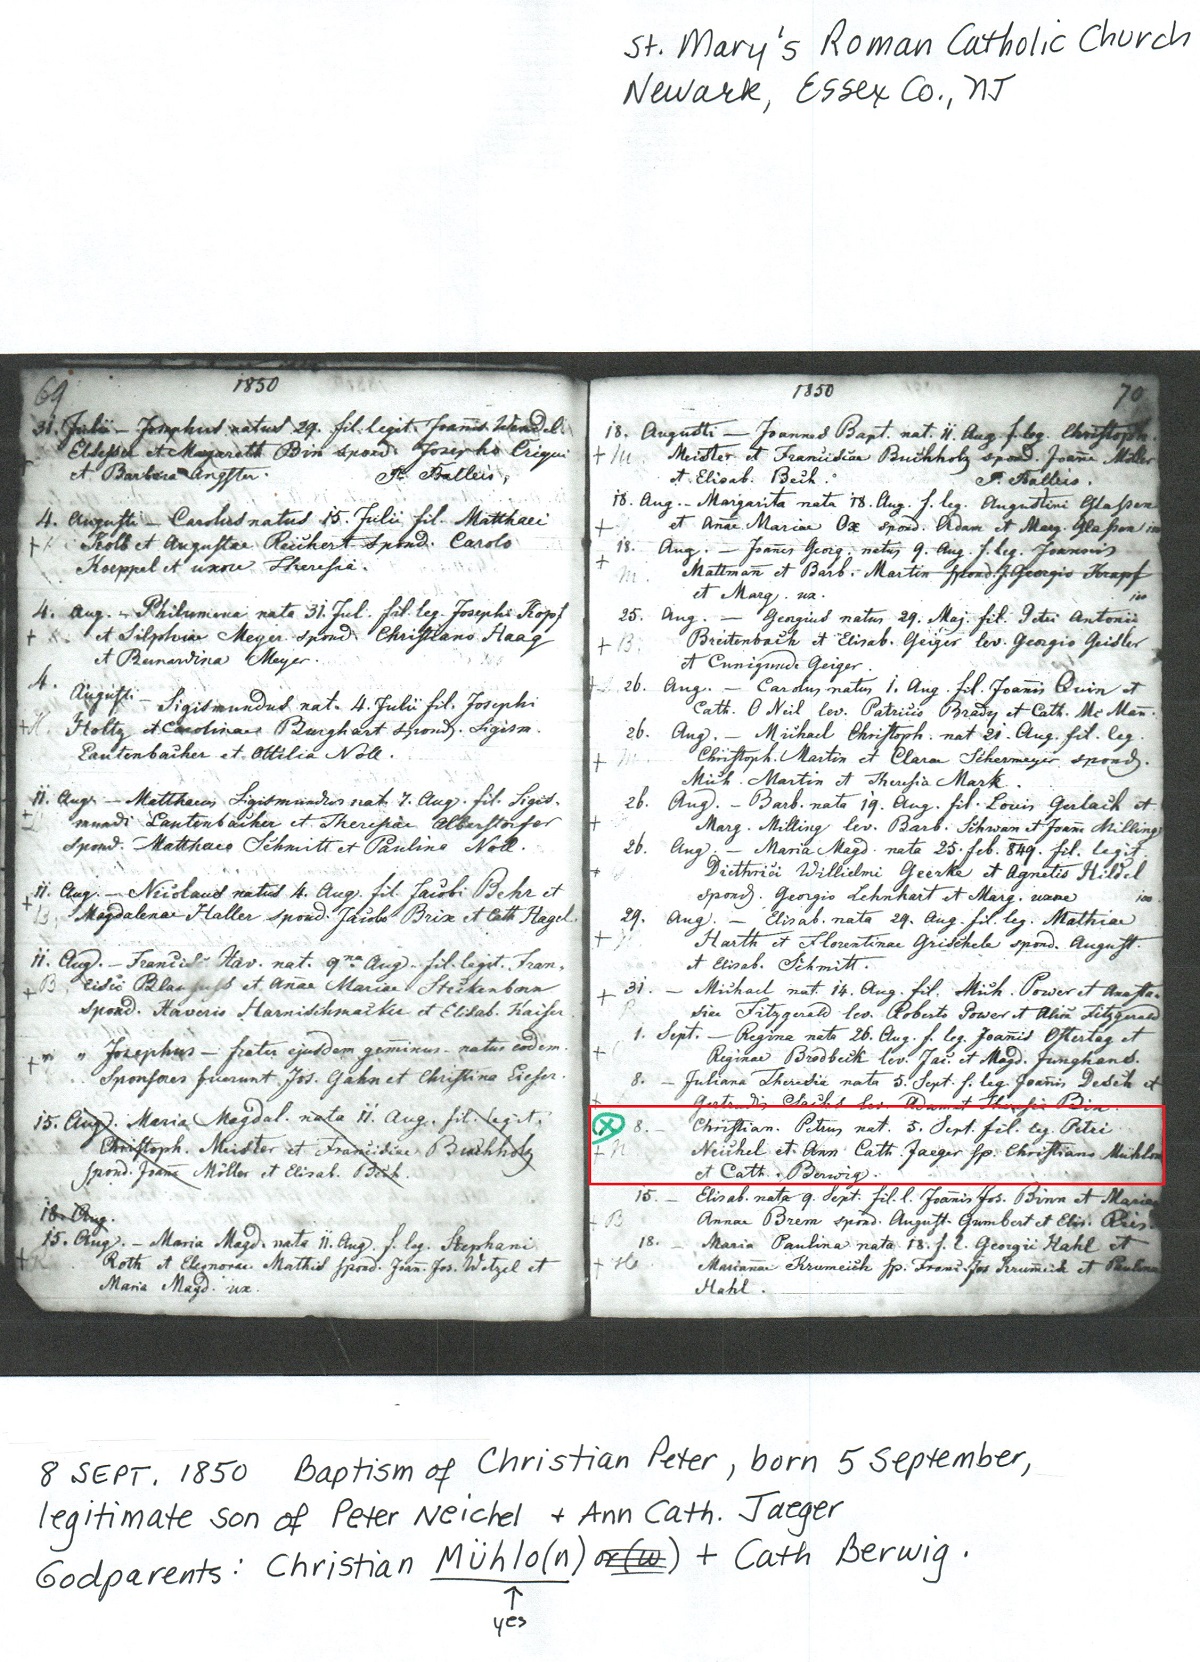 St. Mary's Roman Catholic Church
Newark, Essex Co., NJ
69
1850
31. Julii – Josephus natus 29. fil. legit. Joannis Wendel.
et Margareth Bin spond. Josepho Criqui
et Barbara Angster. P. Balleis,
4. Augusti – Carolus natus 15. Julii fil. Matthaei
Kolb et Augustae Reichert spond. Carolo
Koeppel et uxore Theresia.
4. Aug. – Philumena nata 31. Jul. fil. leg. Josephi Kopf
et Silphiae Meyer spond. Christiano Haag
et Bernardina Meyer.
4. Augusti – Sigismundus nat. 4. Julii fil. Josephi
Holtz et Carolinae Burghart spond. Sigism.
Lautenbacher et Ottilia Noll.
11. Aug. – Matthaeus Sigismundus nat. 7. Aug. fil. Sigis-
mundi Lautenbacher et Theresiae Alberstorfer
spond. Matthaeo Schmitt et Paulina Noll.
11. Aug. – Nicolaus natus 4. Aug. fil. Jacobi Behr et
Magdalenae Haller spond. Jacobo Brix et Cath Hagel.
11. Aug. – Francisc. Xav. nat. 9na Aug. fil. legit. Fran-
cisci et Anae Mariae Steckenborn
spond. Xaverio Harnischmacher et Elisab. Kaiser.
" " Josephus – frater ejusdem geminus – natus eodem.
Sponsores fuerunt Jos. Gahn et Christina Lieser.
15. Aug. Maria Magdal. nata 11. Aug. fil. legit.
Christoph. Meister et Francisciae Buchholz
spond. Joane Möller et Elisab. Bech.
18. Aug.
15. Aug. – Maria Magd. nata 11. Aug. f. leg. Stephani
Roth et Eleonorae Mathis spond. Joan. Jos. Wetzel et
Maria Magd. ux.
1850
70
18. Augusti – Joannes Bapt. nat. 11. Aug. f. leg. Christoph.
+ M Meister et Francisciae Buchholz spond. Joane Möller
et Elisab. Bech. P. Balleis.
18. Aug. – Margarita nata 18. Aug. f. leg. Augustini Glassen
+ et Anae Mariae Ox spond. Adam et Marg. Glassen
18. Aug. – Joanis Georg. natus 9. Aug. f. leg. Joannis
+ M. Mattman et Barb. Martin spond. J. Georgio Knapf
et Marg. ux.
25. Aug. – Georgius natus 29. Maj. fil. Petri Antonii
+ B. Breitenbach et Elisab. Geiger lev. Georgio Geisler
et Cunigunde Geiger.
26. Aug. – Carolus natus 1. Aug. fil. Joanis Quin et
Cath. O Neil lev. Patricio Brady et Cath. Mc Man.
26. Aug. – Michael Christoph. nat 21. Aug. fil. leg.
+ Christoph. Martin et Clarae Schermeyer spond.
Mich. Martin et Theresia Mark.
26. Aug. – Barb. nata 19. Aug. fil. Louis Gerlach et
+ Marg. Milling lev. Barb. Schwan et Joane Milling
26. Aug. – Maria Magd. nata 25. feb. 849. fil. legit
+ Diethrici Willielmi Geerke et Agnetis Hildel
spond. Georgio Lehnhart et Marg. uxore
29. Aug. – Elisab. nata 29. Aug. fil. leg. Mathiae
+ Harth et Florentinae Grischele spond. August.
et Elisab. Schmitt.
31. – Michael nat. 14. Aug. fil. Mich. Power et Anasta-
+ siae Fitzgerald lev. Roberto Power et Alicia Fitzgerald
1. Sept. – Regina nata 26. Aug. f. leg. Joanis Ostertag et
+ Reginae Brodbeck lev. Jac. et Magd. Junghans.
8. – Juliana Theresia nata 5. Sept. f. leg. Joanis Desch et
Gertrudis Sachs lev. Adam et Theresia Bin.
8. – Christian. Petrus nat. 5. Sept. fil. leg. Petri
+ N Neichel et Ann Cath. Jaeger sp. Christiano Mühlon
et Cath. Berwig.
15. – Elisab. nata 9. Sept. fil. l. Joanis Jos. Binn et Mariae
+ B Annae Brem spond. August. Gumbert et Elis. Reis.
18. – Maria Paulina nata 18. f. l. Georgii Hahl et
+ H Mariannae Krumeich sp. Franc. Jos Krumeich et Paulina
Hahl.
8 SEPT. 1850 Baptism of Christian Peter, born 5 September,
legitimate son of Peter Neichel + Ann Cath. Jaeger
Godparents: Christian Mühlo(n) or (w) + Cath Berwig.
↑
yes